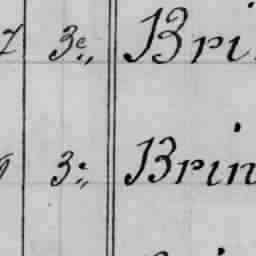 7 3e., Bri
3:, Brin